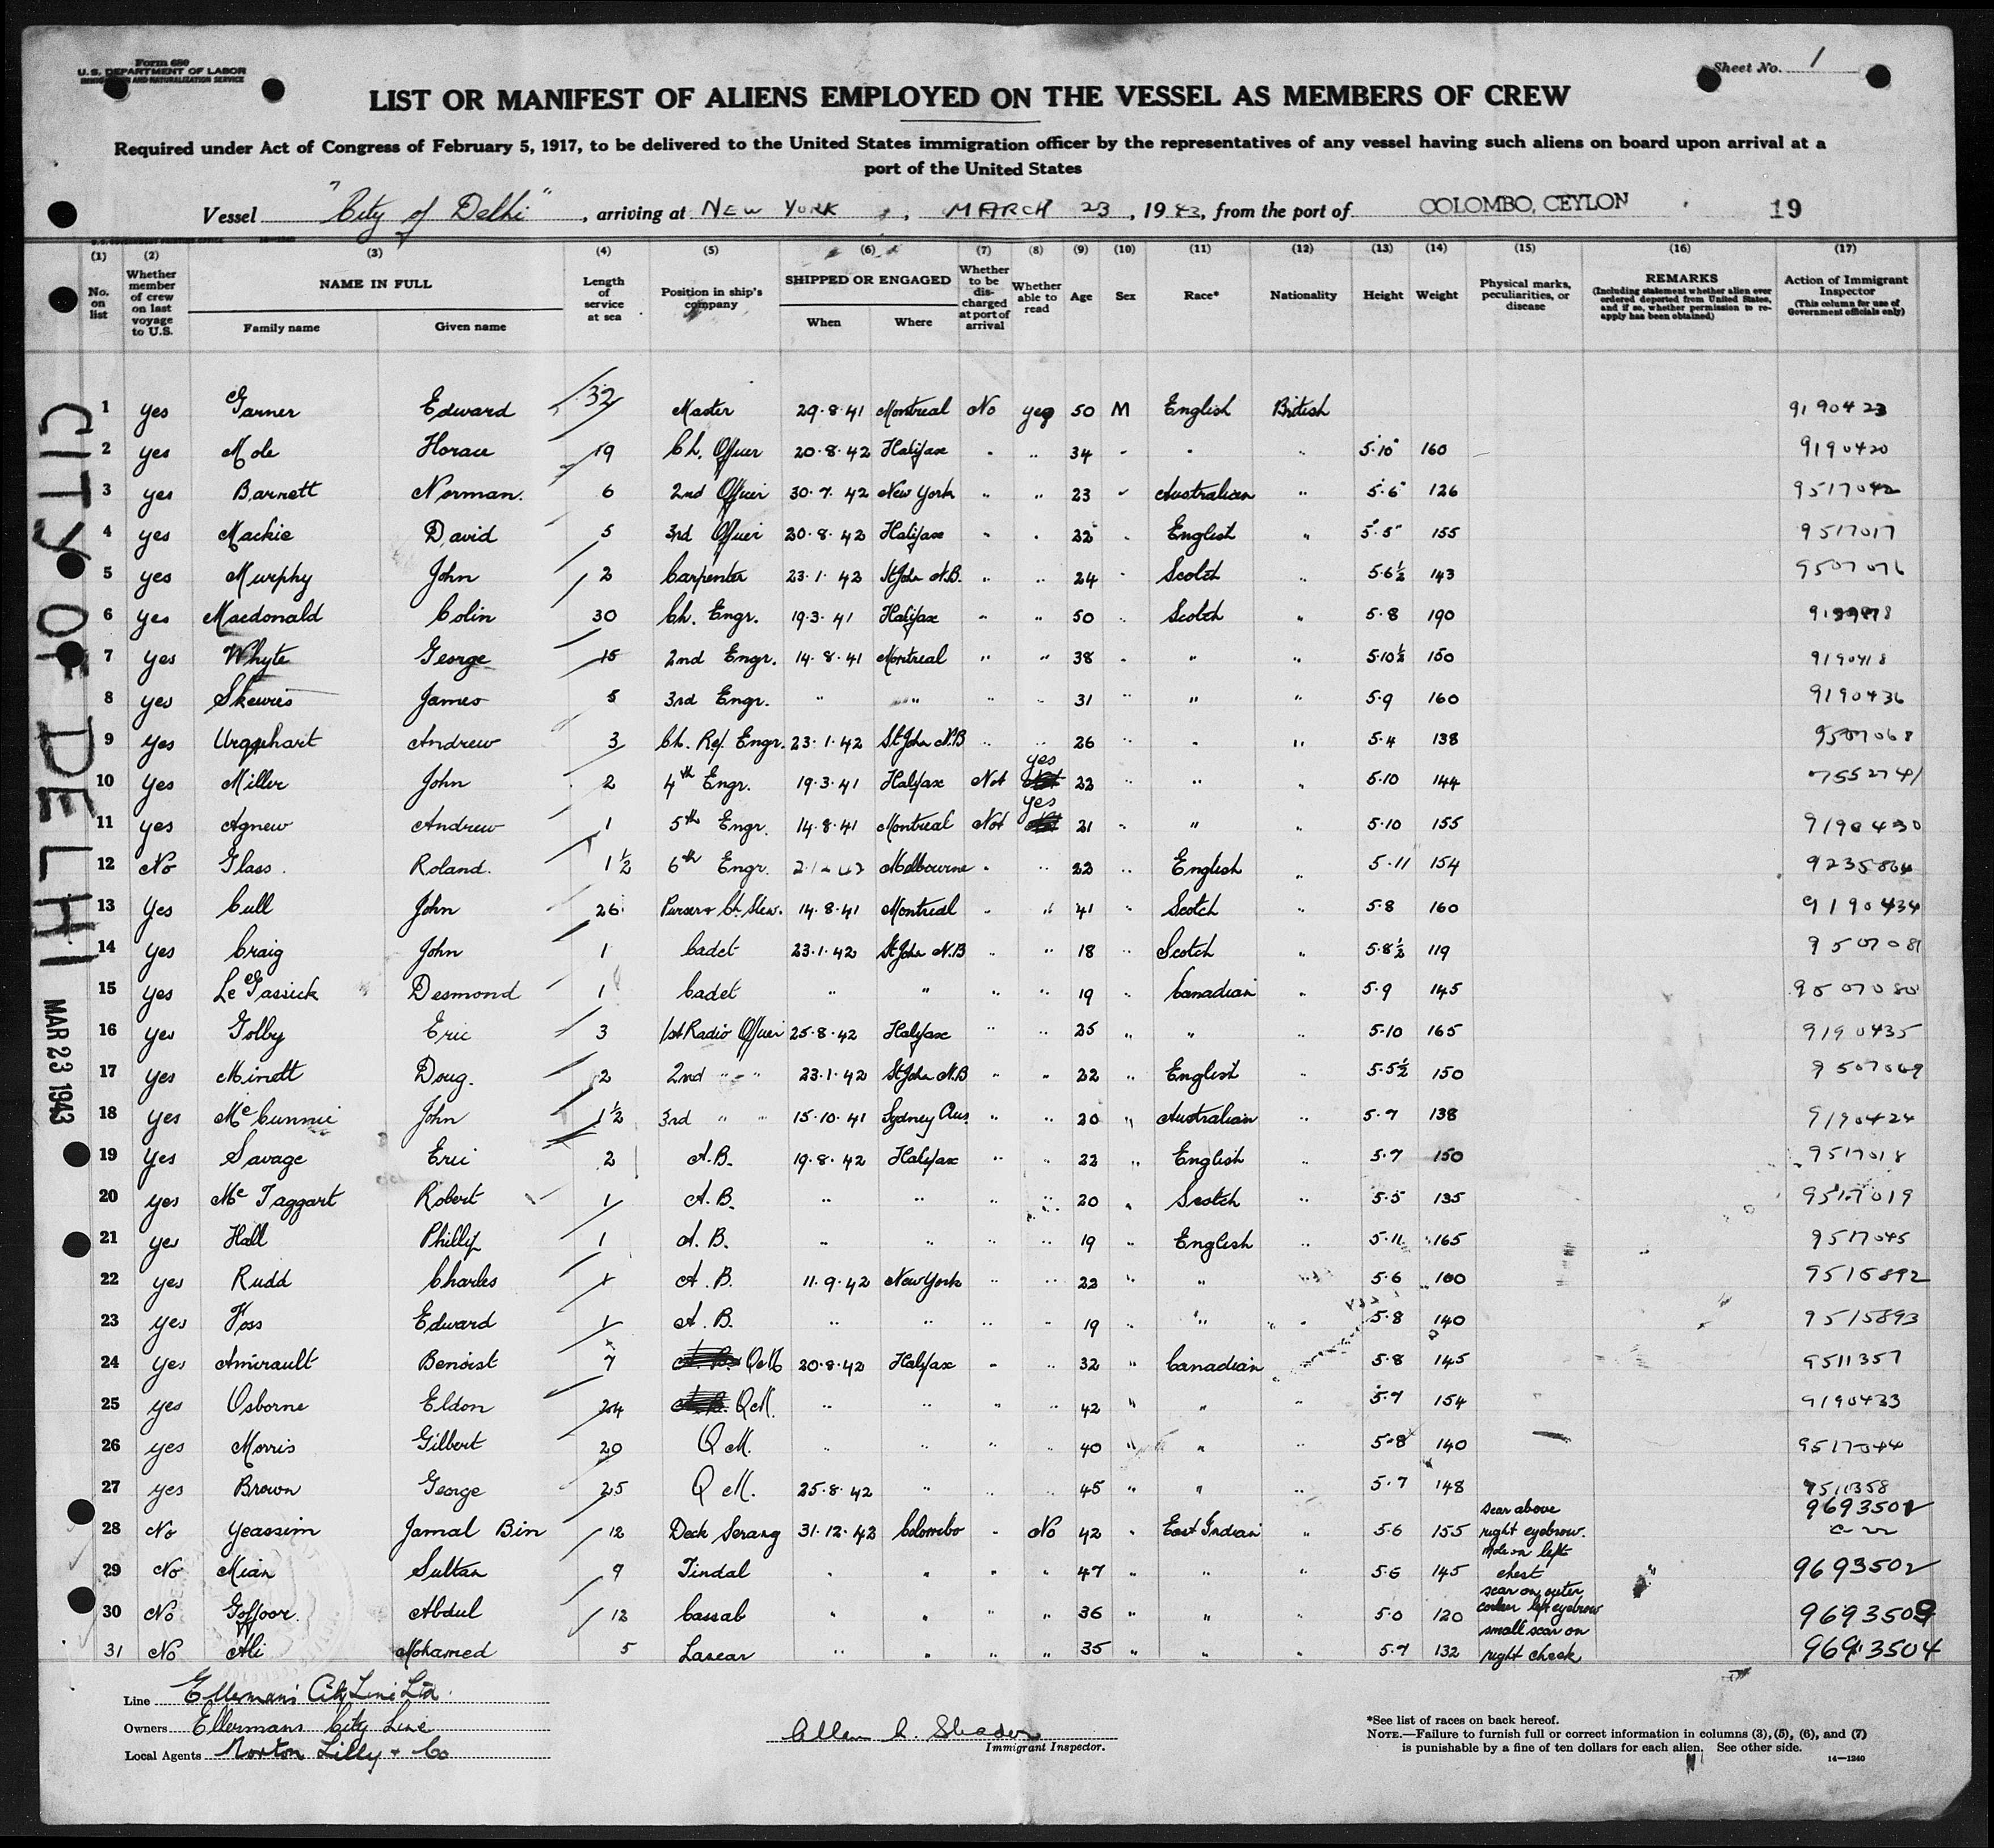 Form 680
U. S. DEPARTMENT OF LABOR
IMMIGRATION AND NATURALIZATION SERVICE
Sheet No. 1
LIST OR MANIFEST OF ALIENS EMPLOYED ON THE VESSEL AS MEMBERS OF CREW
Required under Act of Congress of February 5, 1917, to be delivered to the United States immigration officer by the representatives of any vessel having such aliens on board upon arrival at a
port of the United States
Vessel "City of Delhi", arriving at NEW YORK, MARCH 23, 1943, from the port of COLOMBO, CEYLON 19
(1) (2) (3) (4) (5) (6) (7) (8) (9) (10) (11) (12) (13) (14) (15) (16) (17)
No. on list
Whether member of crew on last voyage to U.S.
NAME IN FULL
Family name Given name
Length of service at sea
Position in ship's company
SHIPPED OR ENGAGED
When Where
Whether to be discharged at port of arrival
Whether able to read
Age
Sex
Race*
Nationality
Height
Weight
Physical marks, peculiarities, or disease
REMARKS
(Including statement whether alien ever ordered deported from United States, and if so, whether permission to reapply has been obtained)
Action of Immigrant Inspector
(This column for use of Government officials only)
CITY OF DELHI
MAR 23 1943
1 yes Garner Edward 32 Master 29.8.41 Montreal No yes 50 M English British 9190423
2 yes Mole Horace 19 Ch. Officer 20.8.42 Halifax " " 34 " " " 5.10 160 9190420
3 yes Barnett Norman. 6 2nd Officer 30.7.42 New York " " 23 " Australian " 5.6 126 9517042
4 yes Mackie David 5 3rd Officer 20.8.42 Halifax " " 22 " English " 5.5 155 9517017
5 yes Murphy John 2 Carpenter 23.1.42 St John N.B. " " 24 " Scotch " 5.6½ 143 9507076
6 yes Macdonald Colin 30 Ch. Engr. 19.3.41 Halifax " " 50 " Scotch " 5.8 190
7 yes Whyte George 15 2nd Engr. 14.8.41 Montreal " " 38 " " " 5.10½ 150 9190418
8 yes Skewis James 5 3rd Engr. " " " " 31 " " " 5.9 160 9190436
9 yes Urquhart Andrew 3 Ch. Ref. Engr. 23.1.42 St John N.B " " 26 " " " 5.4 138 9507068
10 yes Miller John 2 4th Engr. 19.3.41 Halifax Not yes 22 " " " 5.10 144 7552741
11 yes Agnew Andrew 1 5th Engr. 14.8.41 Montreal Not yes 21 " " " 5.10 155 9190430
12 No Glass. Roland. 1½ 6th Engr. Melbourne " " 22 " English " 5.11 154 9235864
13 yes Cull John 26 Purser & Ch. Stew. 14.8.41 Montreal " " 41 " Scotch " 5.8 160 9190434
14 yes Craig John 1 Cadet 23.1.42 St John N.B " " 18 " Scotch " 5.8½ 119 9507081
15 yes Le Gassick Desmond 1 Cadet " " " " 19 " Canadian " 5.9 145 9507080
16 yes Golby Eric 3 1st Radio Officer 25.8.42 Halifax " " 25 " " " 5.10 165 9190435
17 yes Minett Doug. 2 2nd " " 23.1.42 St John N.B " " 22 " English " 5.5½ 150 9507069
18 yes McCunnie John 1½ 3rd " " 15.10.41 Sydney Aus. " " 20 " Australian " 5.7 138 9190424
19 yes Savage Eric 2 A.B. 19.8.42 Halifax " " 22 " English " 5.7 150 9517018
20 yes McTaggart Robert 1 A.B. " " " " 20 " Scotch " 5.5 135 9517019
21 yes Hall Phillip 1 A.B. " " " " 19 " English " 5.11 165 9517045
22 yes Rudd Charles 1 A.B. 11.9.42 New York " " 22 " " " 5.6 160 9515892
23 yes Foss Edward 1 A.B. " " " " 19 " " " 5.8 140 9515893
24 yes Amirault Benoist 7 Q.M. 20.8.42 Halifax " " 32 " Canadian " 5.8 145 9511357
25 yes Osborne Eldon 24 Q.M. " " " " 42 " " " 5.7 154 9190433
26 yes Morris Gilbert 20 Q.M. " " " " 40 " " " 5.8 140 9517044
27 yes Brown George 25 Q.M. 25.8.42 " " " 45 " " " 5.7 148 9511358
28 No Yeassim Jamal Bin 12 Deck Serang 31.12.42 Colombo " No 42 " East Indian " 5.6 155 scar above right eyebrow. 9693501
29 No Mian Sultan 9 Tindal " " " " 47 " " " 5.6 145 mole on left chest 9693502
30 No Goffoor. Abdul 12 Cassab " " " " 36 " " " 5.0 120 scar on outer corner left eyebrow 9693509
31 No Ali Mohamed 5 Lascar " " " " 35 " " " 5.7 132 small scar on right cheek 9693504
Line Ellerman's City Line Ltd.
Owners Ellermans City Line
Local Agents Norton Lilly & Co
Immigrant Inspector.
*See list of races on back hereof.
NOTE.—Failure to furnish full or correct information in columns (3), (5), (6), and (7)
is punishable by a fine of ten dollars for each alien. See other side.
14—1240